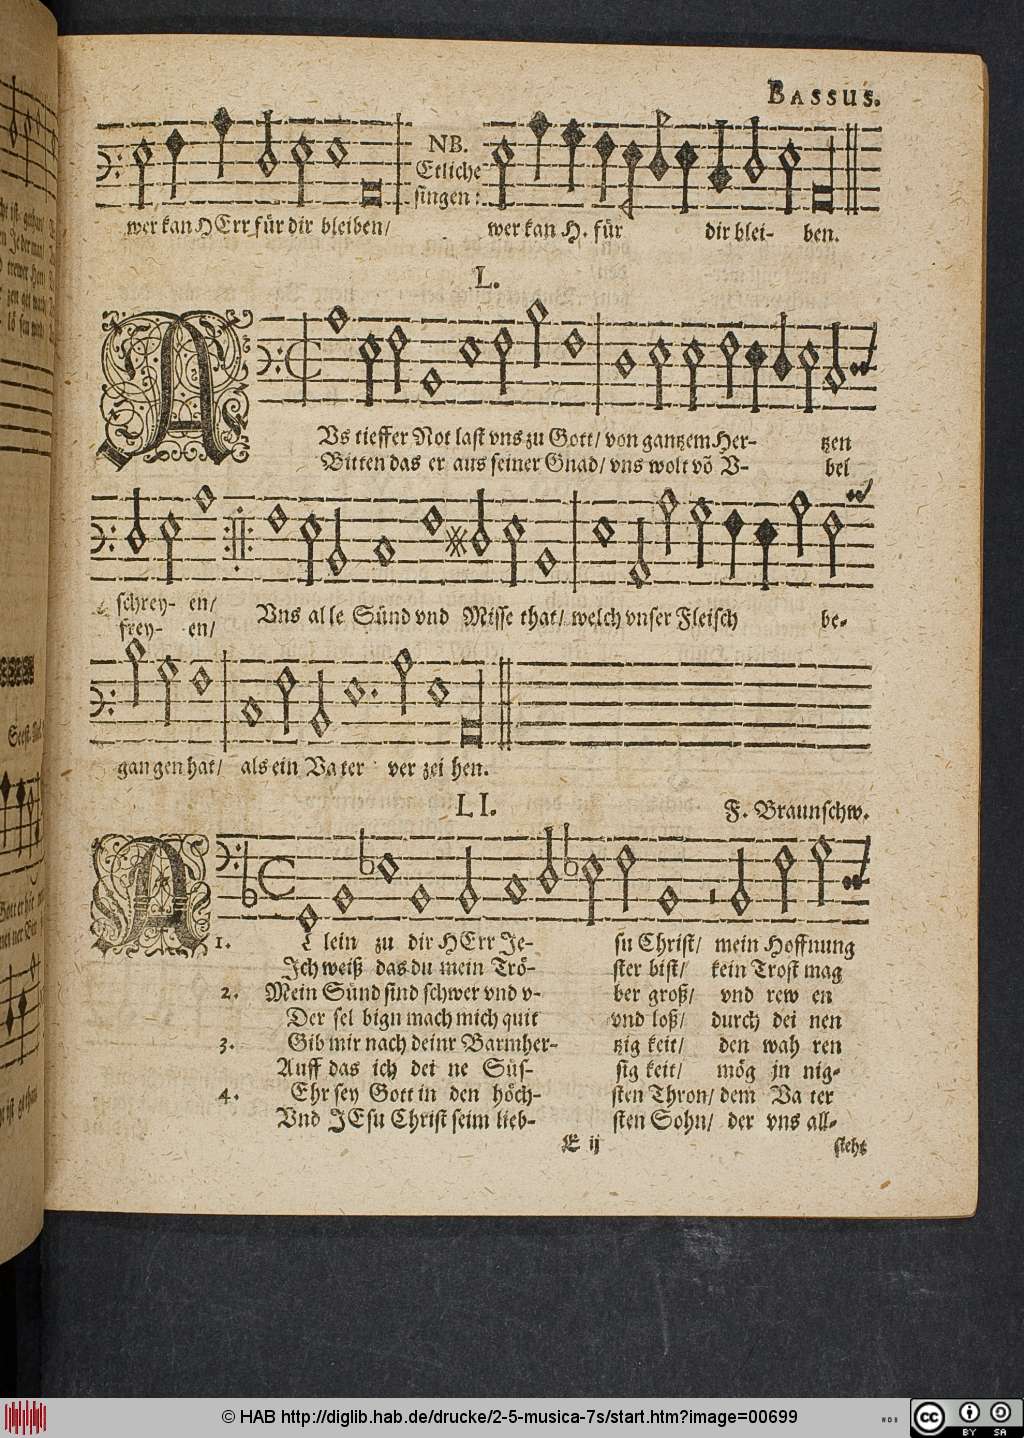 BASSUS.
NB.
Etliche
singen:
wer kan HErr für dir bleiben/ wer kan H. für dir blei- ben.
L.
AUs tieffer Not last vns zu Gott/ von gantzem Her- tzen
Bitten das er aus seiner Gnad/ vns wolt võ V- bel
schrey- en/
frey- en/
Vns al le Sünd vnd Misse that/ welch vnser Fleisch be-
gan gen hat/ als ein Va ter ver zei hen.
LI. F. Braunschw.
1. A lein zu dir HErr Je- su Christ/ mein Hoffnung
Ich weiß das du mein Trö- ster bist/ kein Trost mag
2. Mein Sünd sind schwer vnd v- ber groß/ vnd rew en
Der sel bign mach mich quit vnd loß/ durch dei nen
3. Gib mir nach deinr Barmher- tzig keit/ den wah ren
Auff das ich dei ne Süs- sig keit/ mög in nig-
4. Ehr sey Gott in den höch- sten Thron/ dem Va ter
Vnd JEsu Christ seim lieb- sten Sohn/ der vns all-
E ij steht
© HAB http://diglib.hab.de/drucke/2-5-musica-7s/start.htm?image=00699
WDB
cc
BY SA